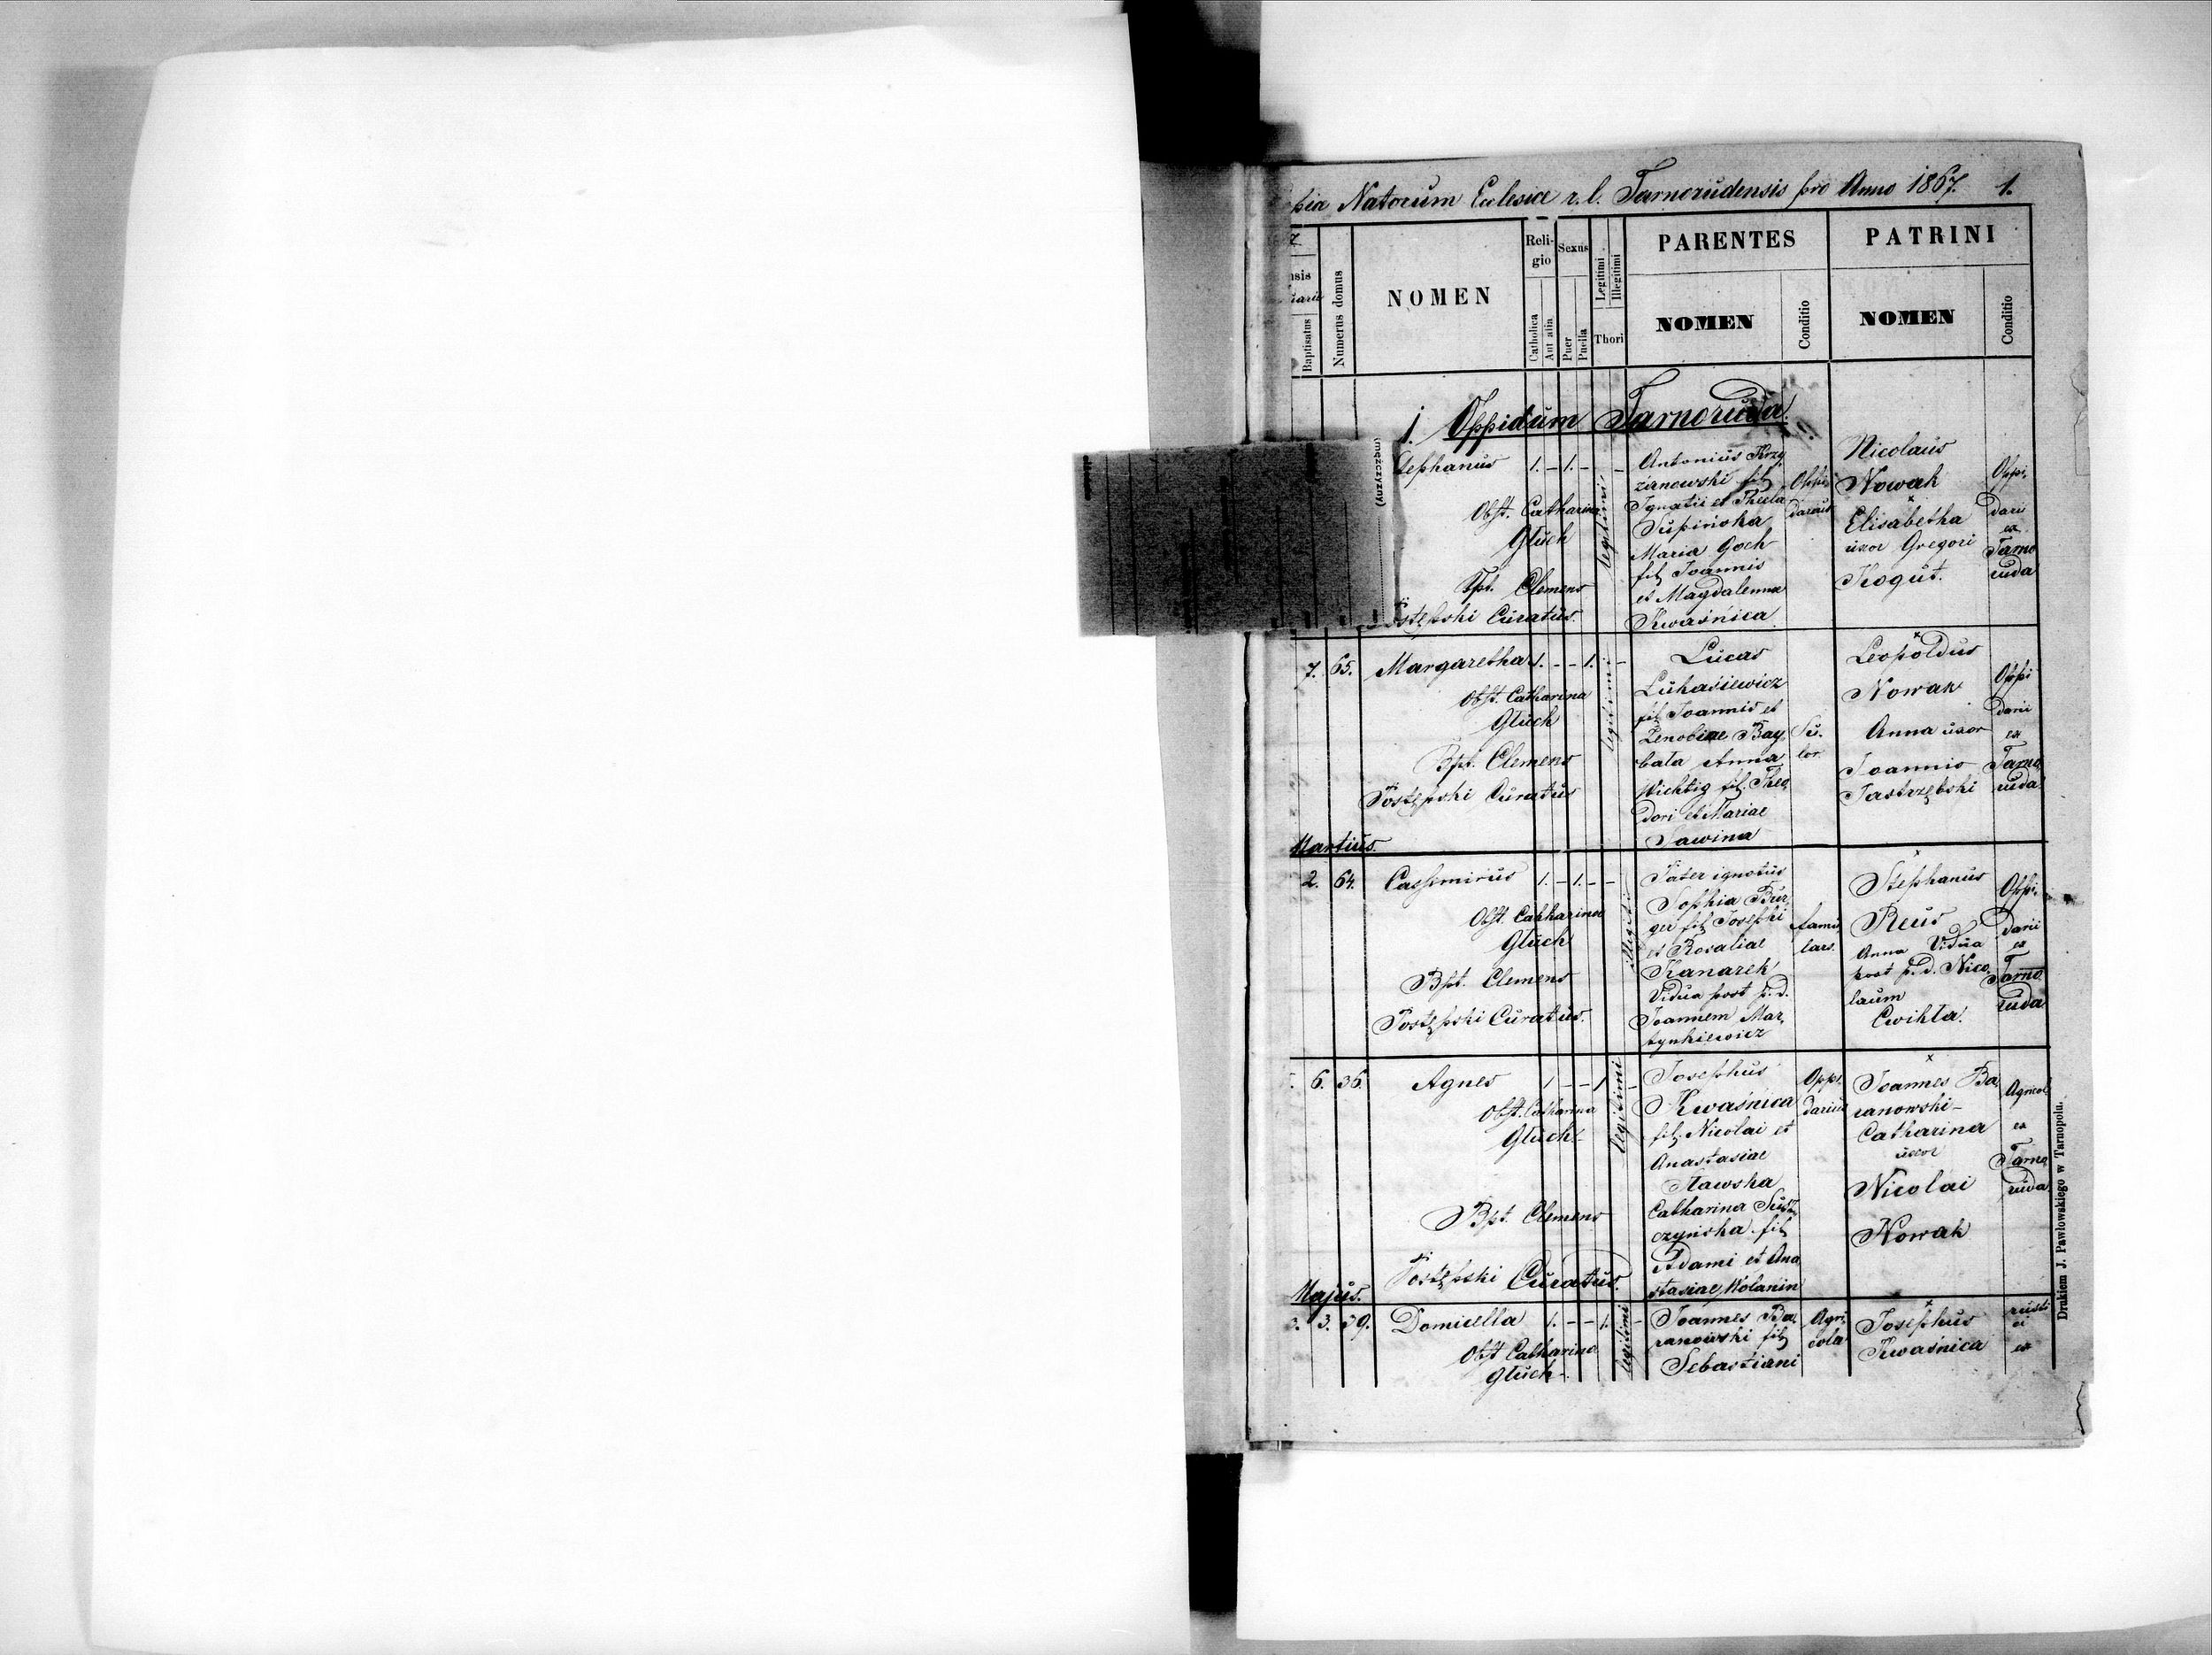 pia Natorum Eclesiae r. l. Tarnorudensis pro Anno 1867. 1.
Baptisatus
Numerus domus
NOMEN
Religio
Catholica
Aut alia
Sexus
Puer
Puella
Legitimi
Illegitimi
Thori
PARENTES
NOMEN
Conditio
PATRINI
NOMEN
Conditio
1. Oppidum Tarnoruda.
(mężczyzny)
Stephanus 1. – 1. – –
Obst. Catharina
Gluch
Bpt. Clemens
Postępski Curatus.
legitimi
Antonius Krzy
zanowski fil
Ignatii et Thecla
Supińska
Maria Goch
fil Joannis
et Magdalenna
Kwaśnica
Oppi
darius
Nicolaus
Nowak
x
Elisabetha
uxor Gregori
Kogut.
Oppi,
darii
ex
Tarno
ruda
7. 65. Margaretha 1. – – 1. –
Obst. Catharina
Gluch
Bpt. Clemens
Postępski Curatus
legitimi
Lucas
Lukasiewicz
fil Joannis et
Zenobiae Bay
bala Anna
Wichtig fil. Theo
dori et Mariae
Sawina
Su.
tor.
x
Leopoldus
Nowak
Anna uxor
Joannis
Jastrzębski
Oppi
darii
ex
Tarno
ruda
Martius.
2. 64. Casimirus 1. – 1. – –
Obst. Catharina
Gluch
Bpt. Clemens
Postępski Curatus.
illegiti
Pater ignotus
Sophia Bur
ger fil Josephi
et Rosaliae
Kanarek
Vidua post p. d.
Joannem Mar
tynkiewicz
famu
lars.
x
Stephanus
Reus
Anna Vidua
post p. d. Nico
laum
Cwikla.
Oppi.
darii
ex
Tarno
ruda
6. 36. Agnes 1 – – 1 –
Obst. Catharina
Gluch
Bpt. Clemens
Postępski Curatus.
legitimi
Josephus
Kwaśnica
fil. Nicolai et
Anastasiae
Stawska
Catharina
czynska fil
Adami et Ana
stasiae Wolanin
Oppi.
darius
x
Joannes Ba
ranowski –
Catharina
uxor
Nicolai
Nowak
Agricol
ex
Tarno
ruda
Majus.
3. 3. 39. Domicella 1. – – 1. –
Obst Catharina
Gluch
legitimi
Joannes Ba
ranowski fil
Sebastiani
Agri.
cola
x
Josephus
Kwaśnica
rusti
ci
ex
Drukiem J. Pawłowskiego w Tarnopolu.